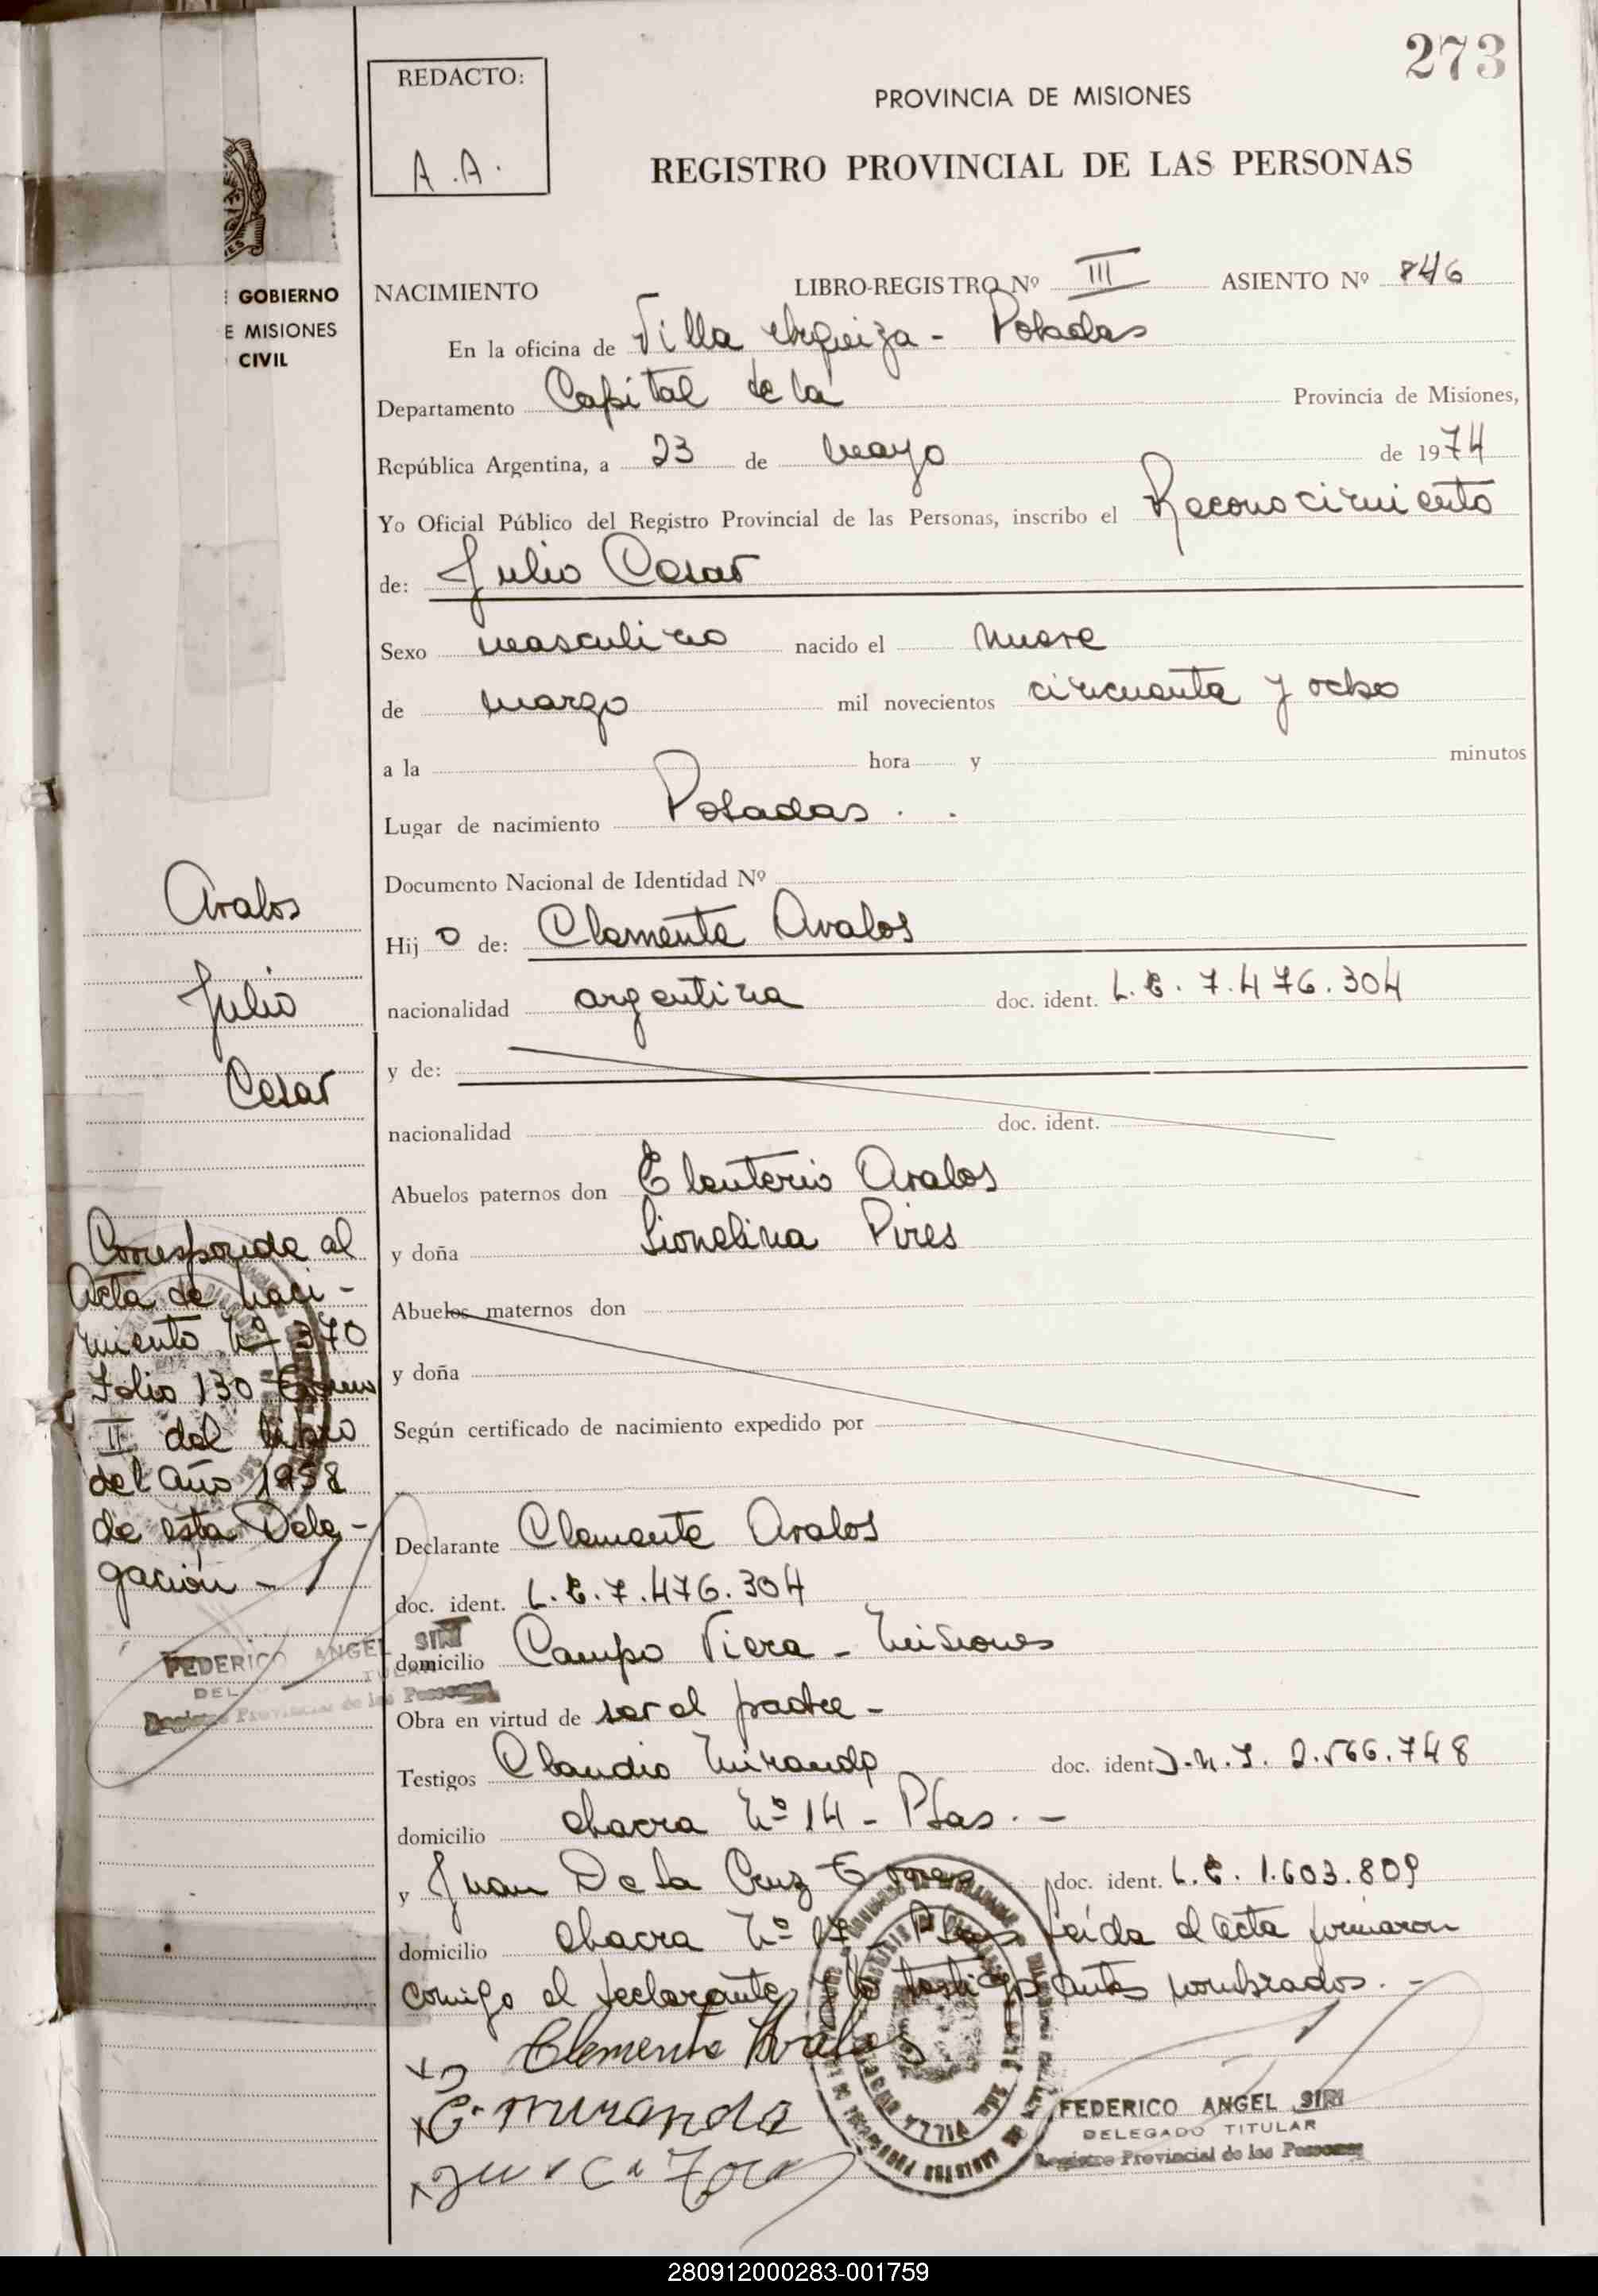 273
REDACTO:
A.A.
PROVINCIA DE MISIONES
REGISTRO PROVINCIAL DE LAS PERSONAS
GOBIERNO
E MISIONES
CIVIL
NACIMIENTO LIBRO-REGISTRO Nº III ASIENTO Nº 846
En la oficina de Villa Urquiza - Posadas
Departamento Capital de la Provincia de Misiones,
República Argentina, a 23 de mayo de 1974
Yo Oficial Público del Registro Provincial de las Personas, inscribo el Reconocimiento
de: Julio Cesar
Sexo masculino nacido el nueve
de marzo mil novecientos cincuenta y ocho
a la hora y minutos
Lugar de nacimiento Posadas . .
Documento Nacional de Identidad Nº
Hijo de: Clemente Avalos
nacionalidad argentina doc. ident. L.E. 7.476.304
y de:
nacionalidad doc. ident.
Abuelos paternos don Eleuterio Avalos
y doña Lionelina Pires
Abuelos maternos don
y doña
Según certificado de nacimiento expedido por
Declarante Clemente Avalos
doc. ident. L.E. 7.476.304
domicilio Campo Viera - Misiones
Obra en virtud de ser el padre -
Testigos Claudio Miranda doc. ident D.N.I. 2.566.748
domicilio chacra Nº 14 - Pdas. -
y Juan De la Cruz doc. ident. L.E. 1.603.809
domicilio chacra Nº Pdas Leida el acta firmaron
comigo el declarante y los testigos antes nombrados. -
Clemente Avalos
C. Miranda
FEDERICO ANGEL SIRI
DELEGADO TITULAR
Registro Provincial de las Personas
Avalos
Julio
Cesar
Corresponde al
Acta de naci-
miento Nº 370
Folio 130 Tomo
II del libro
del año 1958
de esta Dele-
gación -
FEDERICO ANGEL SIRI
Registro Provincial de las Personas
280912000283-001759